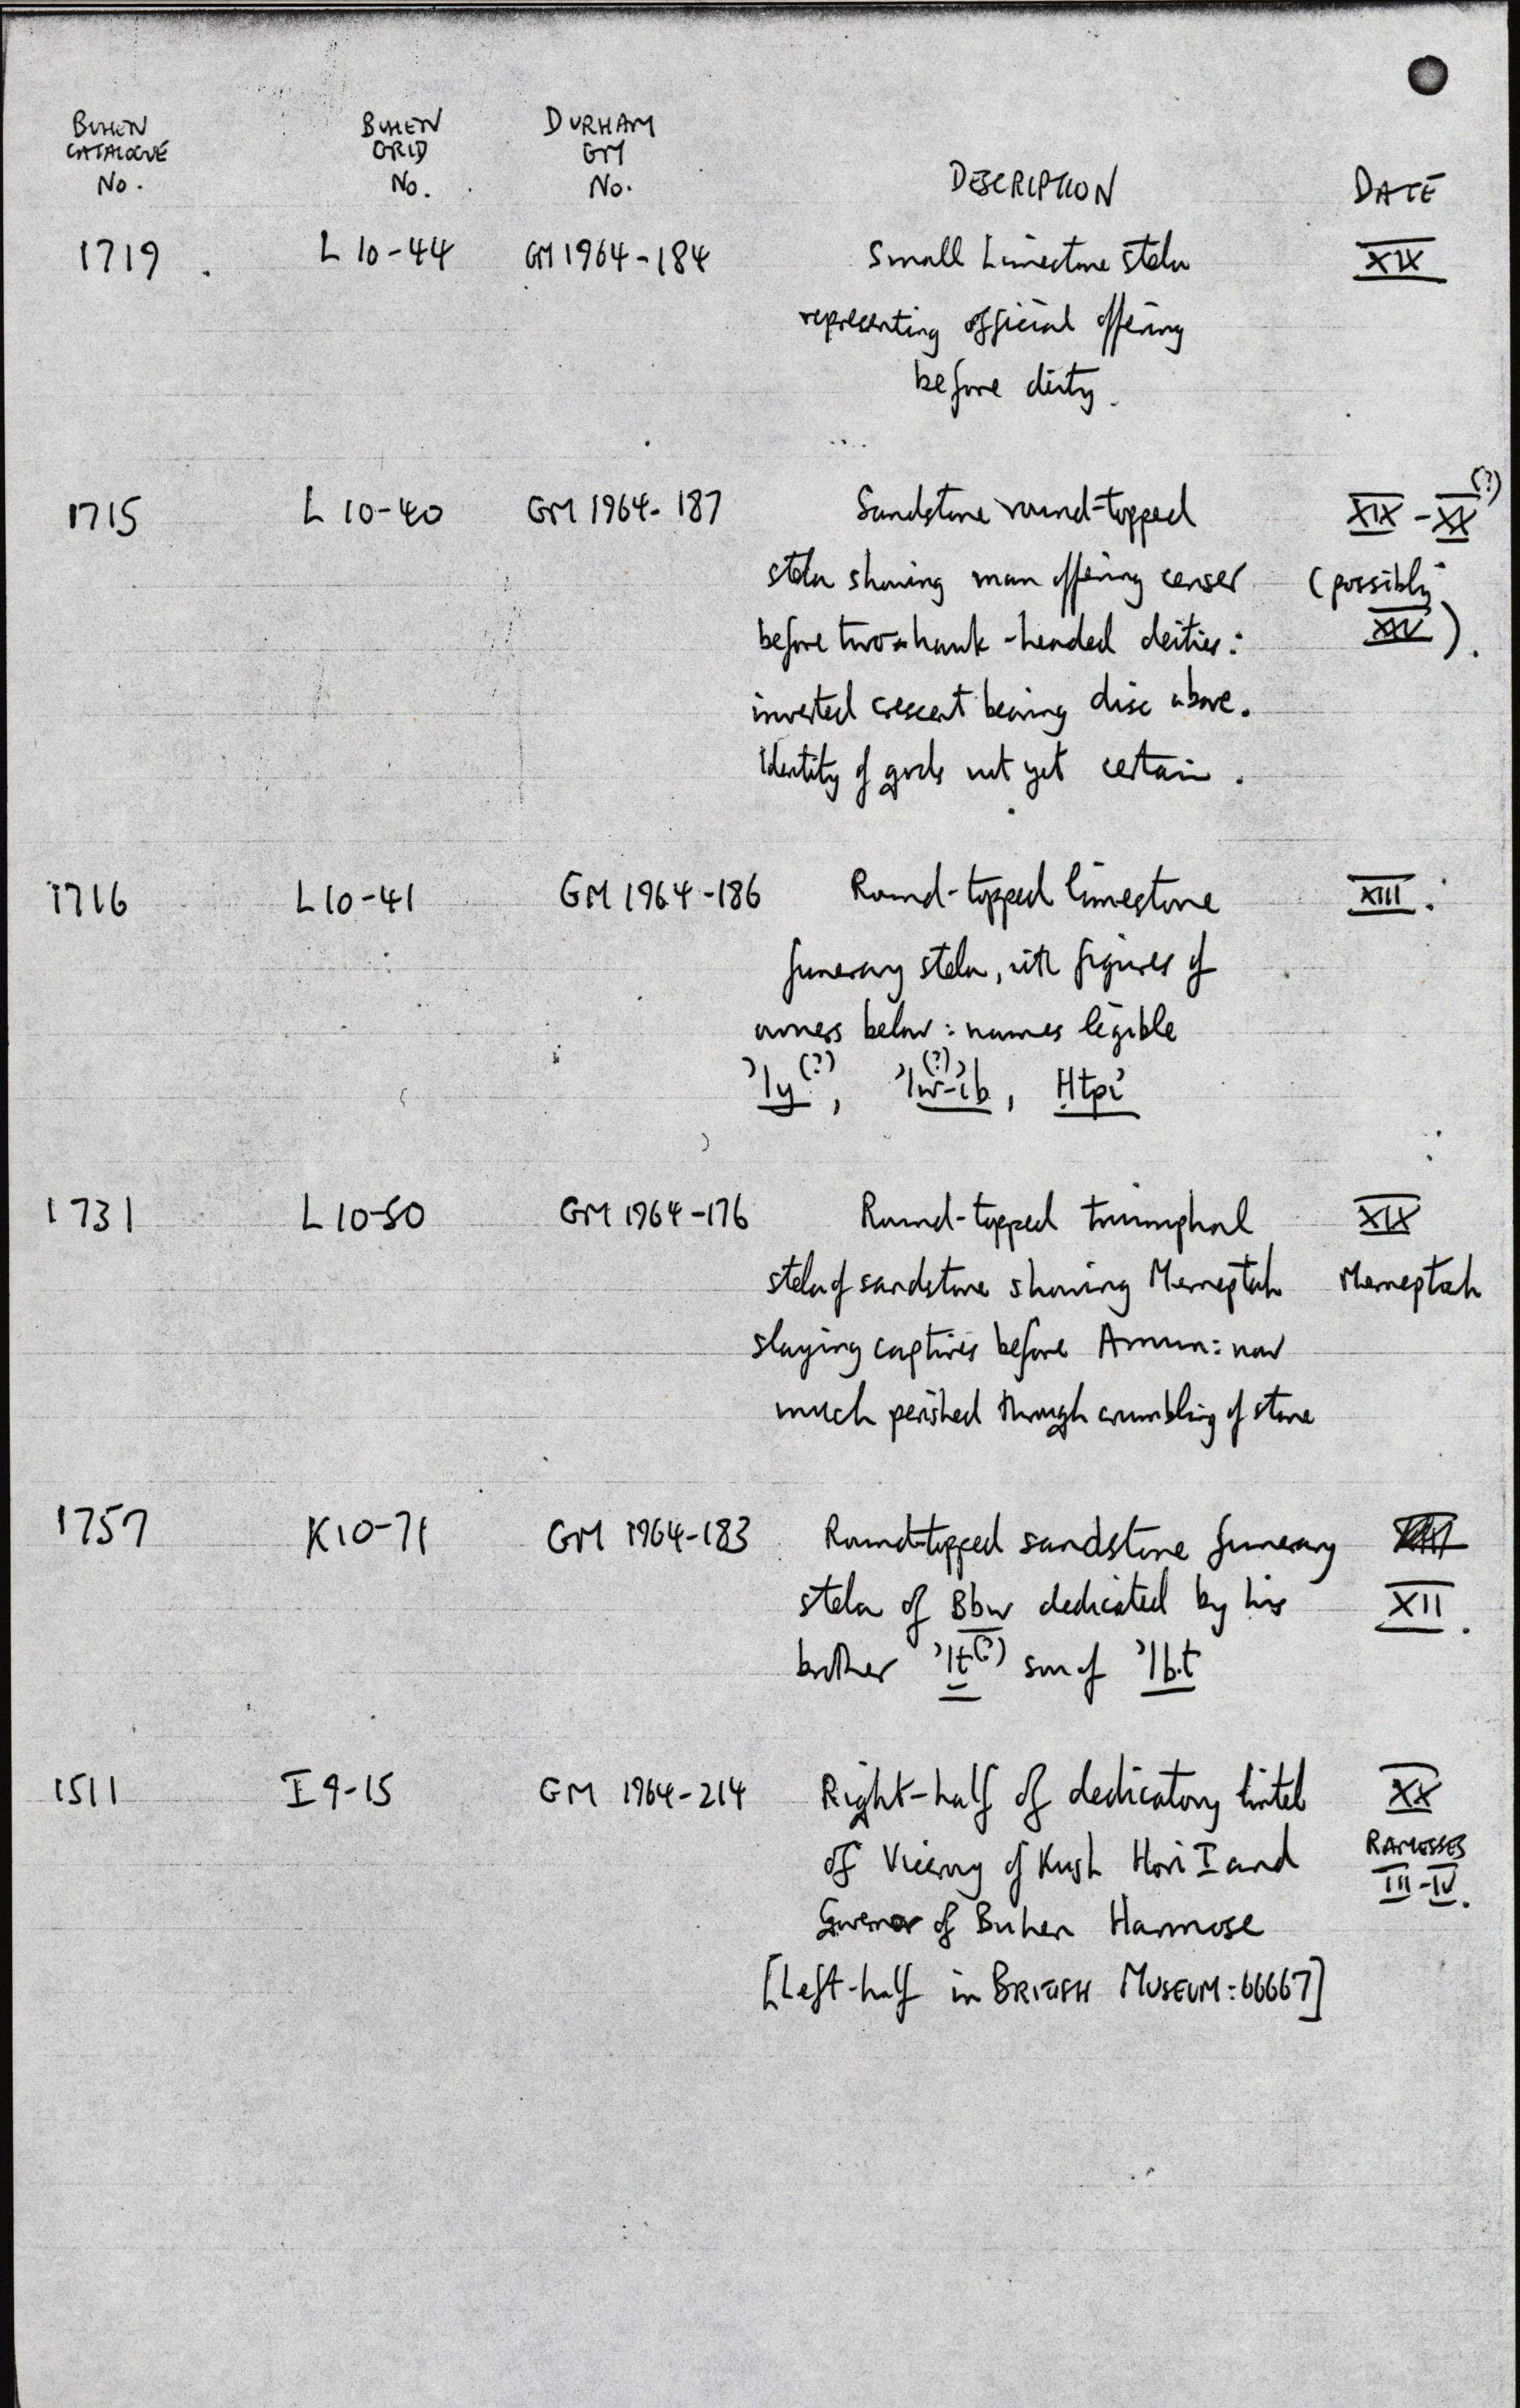 BUHEN BUHEN DURHAM
CATALOGUE GRID GM
No. No. No. DESCRIPTION DATE
1719. L 10-44 GM 1964-184 Small Limestone stela XIX
representing official offering
before deity.
1715 L 10-40 GM 1964-187 Sandstone round-topped XIX-XX(?)
stela showing man offering censer (possibly
before two hawk-headed deities: XXV).
inverted crescent bearing disc above.
Identity of gods not yet certain.
1716 L10-41 GM 1964-186 Round-topped limestone XIII.
funerary stela, with figures of
owners below: names legible
'Iy(?), 'Iw(?)-'ib, Ḥtpi'
1731 L 10-50 GM 1964-176 Round-topped triumphal XIX
stela of sandstone showing Merneptah Merneptah
slaying captives before Amun: now
much perished through crumbling of stone
1757 K10-71 GM 1964-183 Round-topped sandstone funerary
stela of Bbw dedicated by his XII.
brother 'It(?) son of 'Ib.t
1511 I 9-15 GM 1964-214 Right-half of dedicatory lintel XX
of Viceroy of Kush Hori I and RAMESSES
Governor of Buhen Harmose III-IV.
[Left-half in BRITISH MUSEUM: 66667]